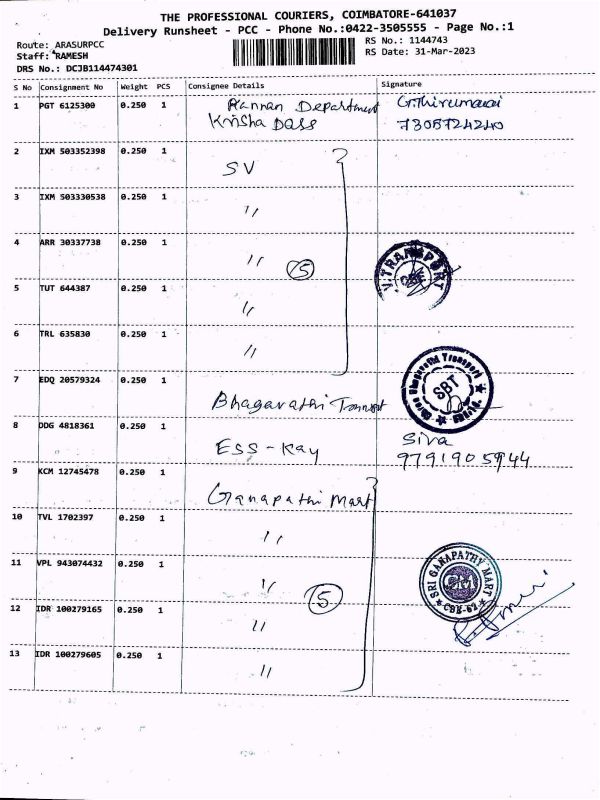 THE PROFESSIONAL COURIERS, COIMBATORE-641037
Delivery Runsheet - PCC - Phone No.:0422-3505555 - Page No.:1
Route: ARASURPCC RS No.: 1144743
Staff: RAMESH RS Date: 31-Mar-2023
DRS No.: DCJB114474301
S No Consignment No Weight PCS Consignee Details Signature
1 PGT 6125300 0.250 1 Kannan Department G.Thirumalai
Krisha Dass 7305724240
2 IXM 503352398 0.250 1
SV
3 IXM 503330538 0.250 1
"
4 ARR 30337738 0.250 1
" 5 V.TRANSPORT CBE
5 TUT 644387 0.250 1
"
6 TRL 635830 0.250 1
"
7 EDQ 20579324 0.250 1
Bhagavathi Transport Bhagavathi Transport SBT
8 DDG 4818361 0.250 1 Siva
ESS-Kay 9791905944
9 KCM 12745478 0.250 1
Ganapathi Mart
10 TVL 1702397 0.250 1
"
11 VPL 943074432 0.250 1
" 5 SRI GANAPATHY MART CBE-62
12 IDR 100279165 0.250 1
"
13 IDR 100279605 0.250 1
"